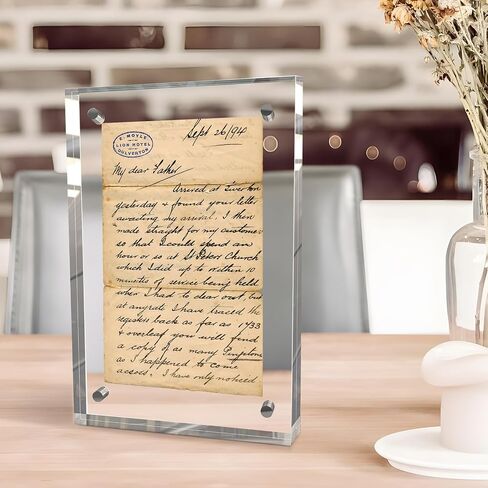 E. MOYLE
LION HOTEL
DULVERTON.
Sept 26/94
My dear Father
Arrived at Tiverton
yesterday & found your letter
awaiting my arrival. I then
made straight for my customer
so that I could spend an
hour or so at St Peter Church
which I did up to within 10
minutes of service being held
when I had to clear out, but
at anyrate I have traced the
registers back as far as 1733
& overleaf you will find
a copy of as many
as I happened to come
across. I have only noticed